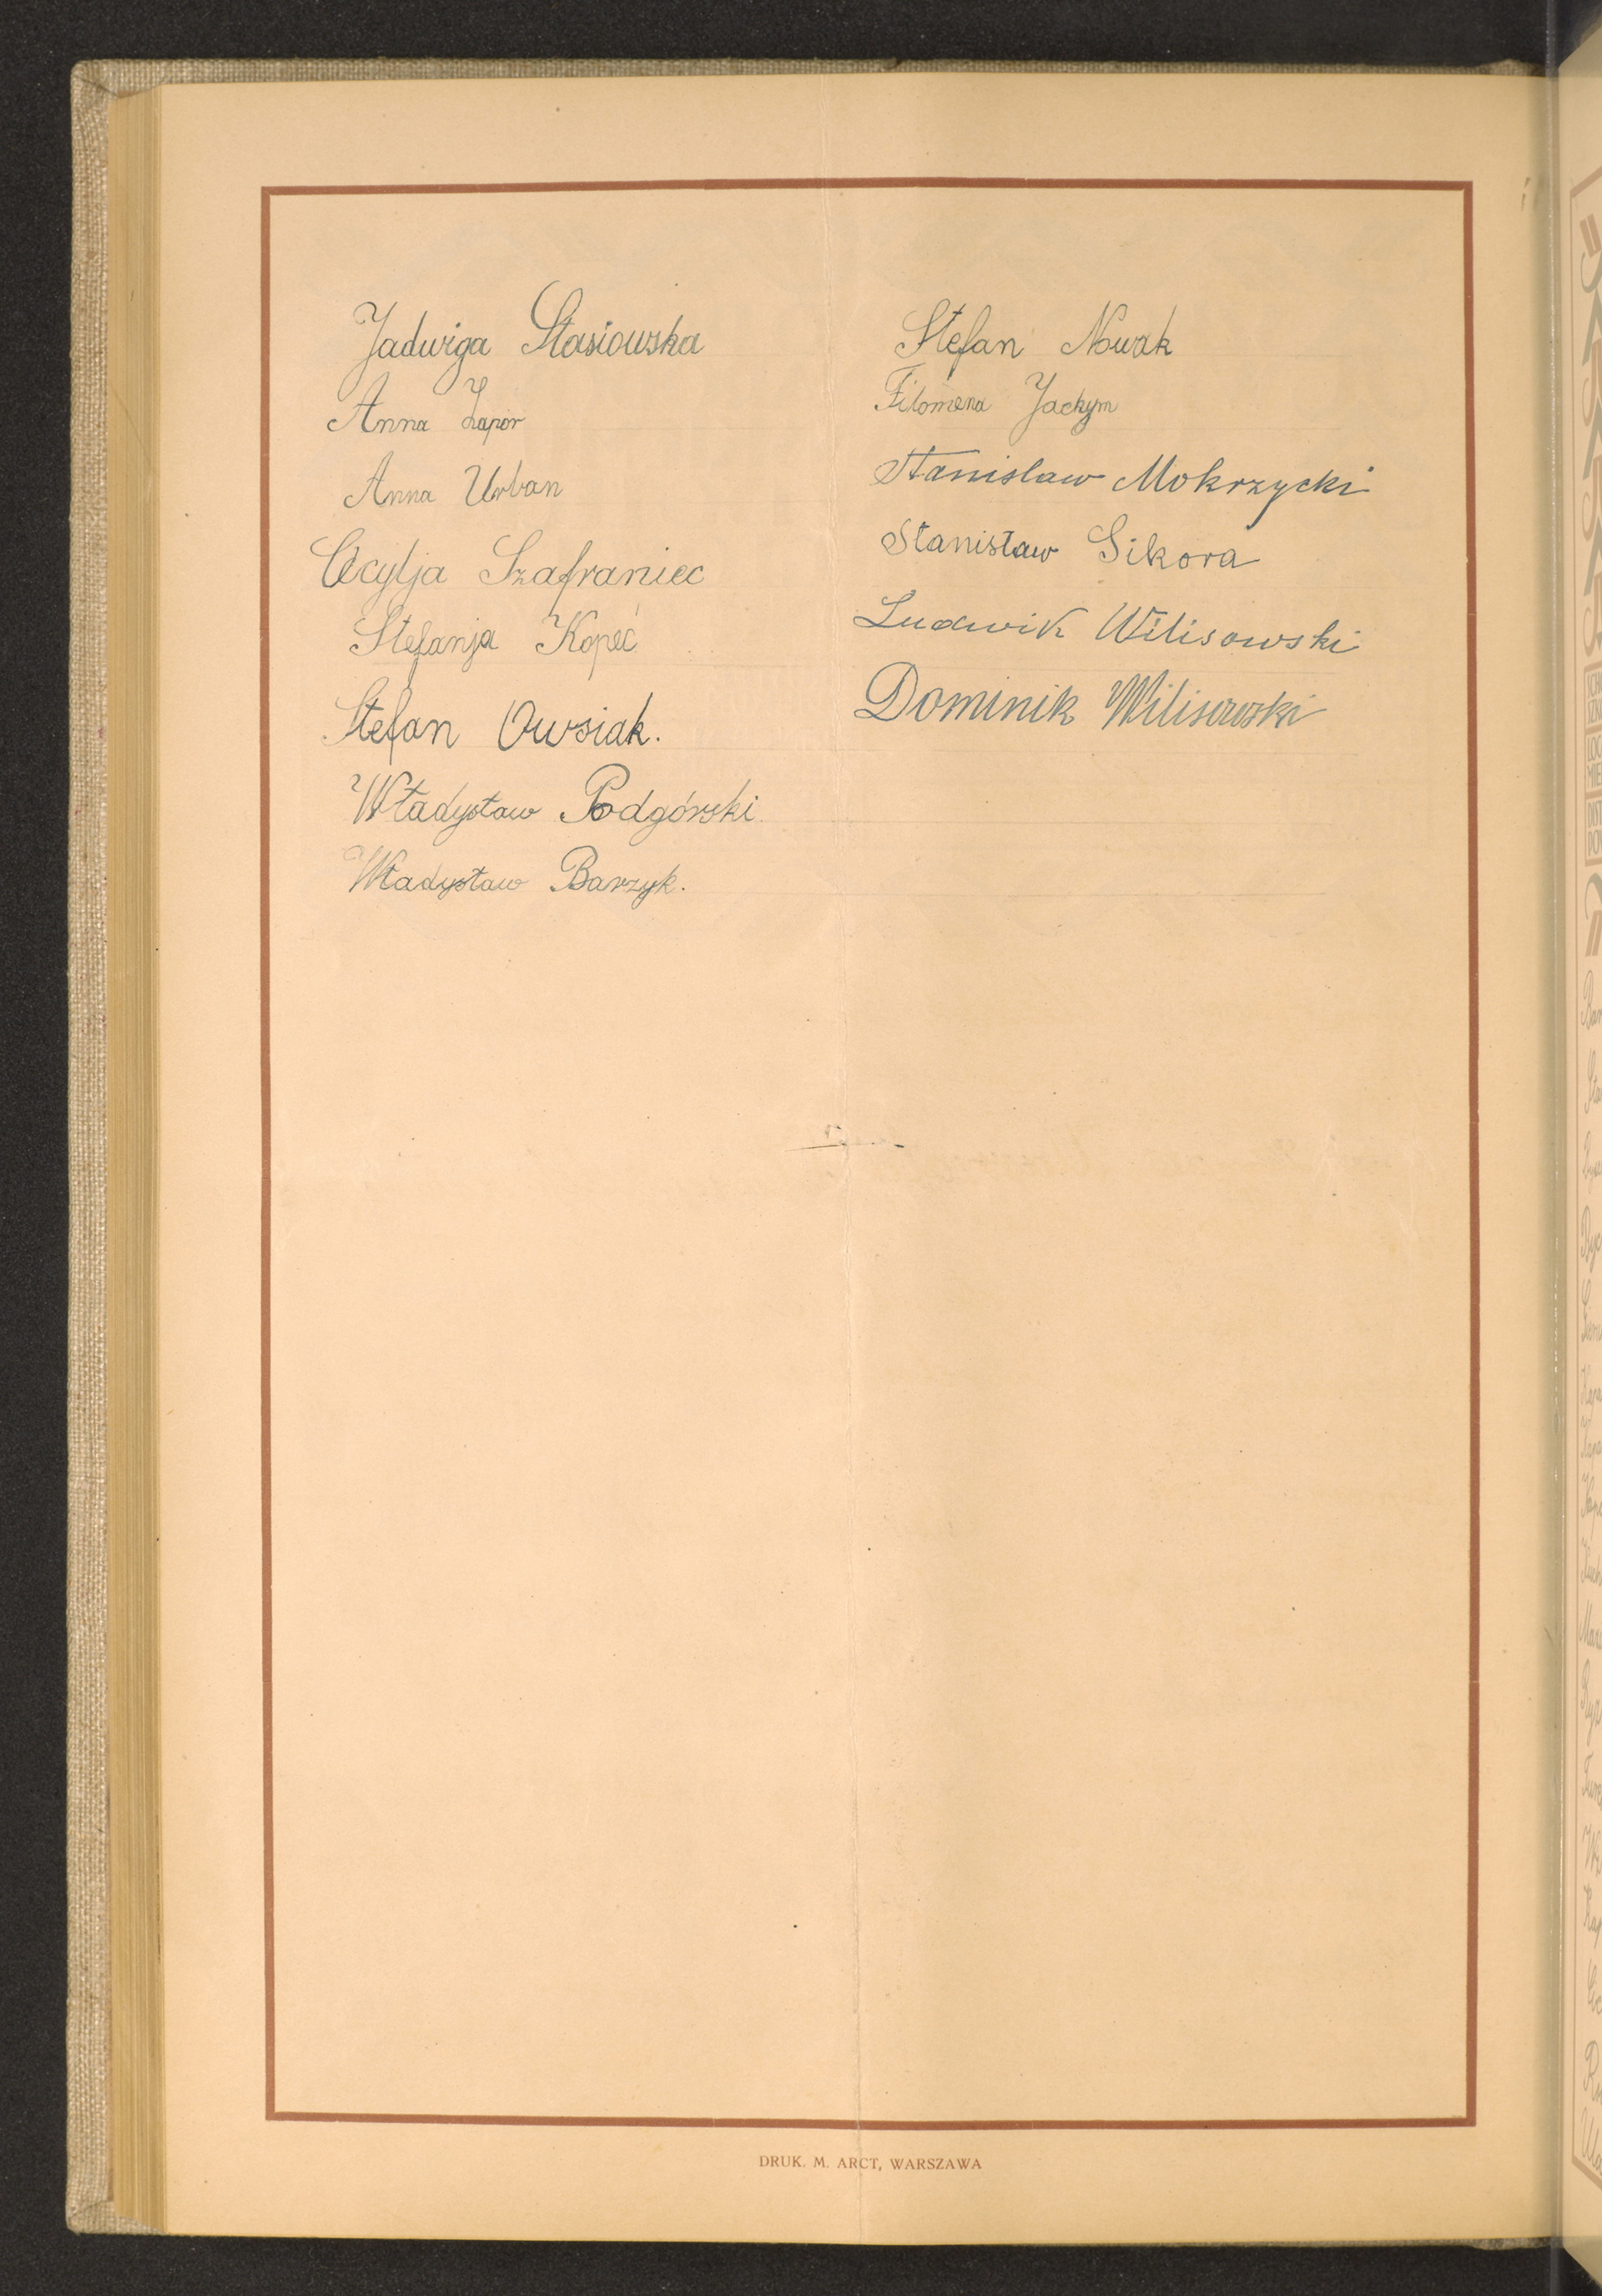 Jadwiga Stasiowska
Anna Zapór
Anna Urban
Cecylja Szafraniec
Stefanja Kopeć
Stefan Owsiak.
Władysław Podgórski.
Władysław Barzyk.
Stefan Nowak
Filomena Jachym
Stanislaw Mokrzycki
Stanisław Sikora
Ludwik Wilisowski
Dominik Wilisowski
DRUK. M. ARCT, WARSZAWA